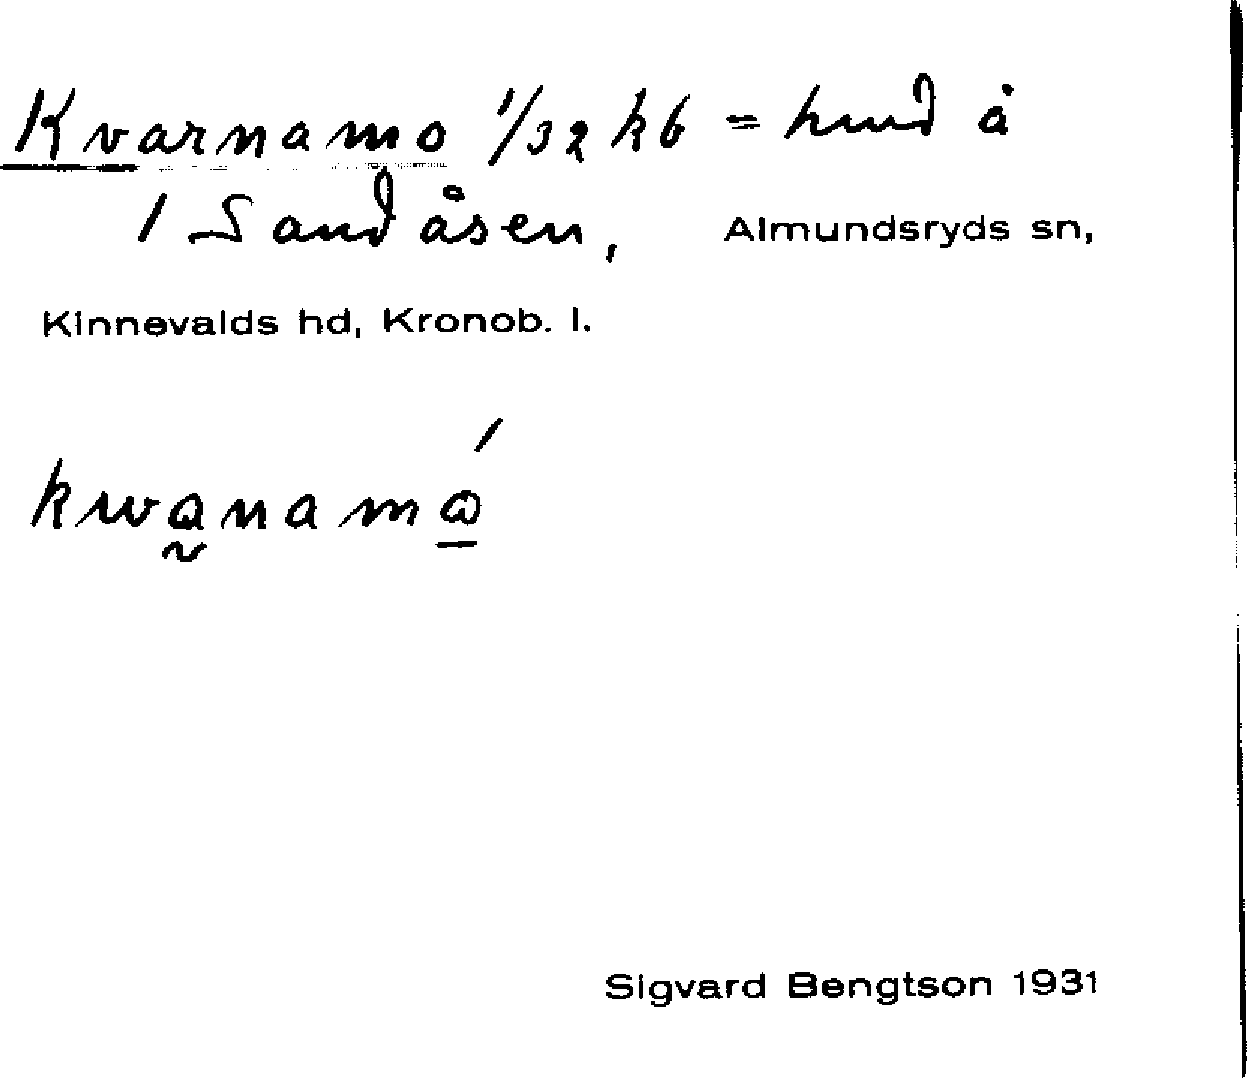 Kvarnamo 1/32 kb = hmd å
1 Sandåsen, Almundsryds sn,
Kinnevalds hd, Kronob. l.
kwanamó
Sigvard Bengtson 1931